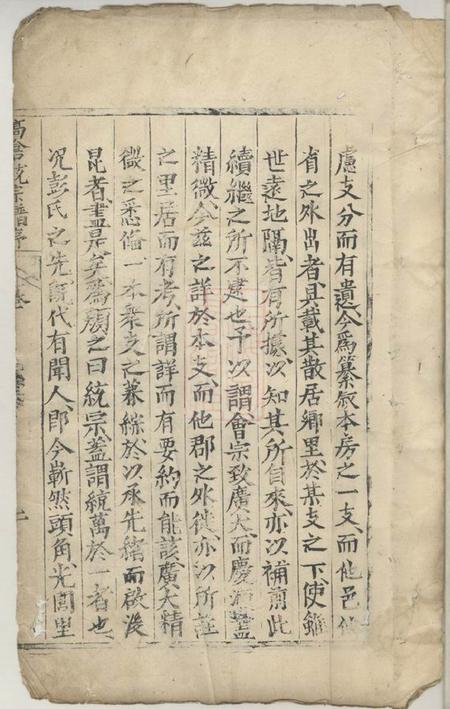 慮支分而有遺今爲纂叙本房之一支而他邑他
省之外出者具載其散居鄉里於某支之下使雖
世遠地隔皆有所據以知其所自來亦以補前此
續繼之所不逮也予以謂會宗致廣大而慶源盡
精微今兹之詳於本支而他郡之外徙亦以所註
之里居而有考所謂詳而有要約而能該廣大精
微之悉俻一本衆支之兼綜於以承先緒而啟後
昆者盡是矣爲顏之曰統宗蓋謂統萬於一者也
况彭氏之先歷代有聞人郎今嶄然頭角光閭里
統宗譜序
二